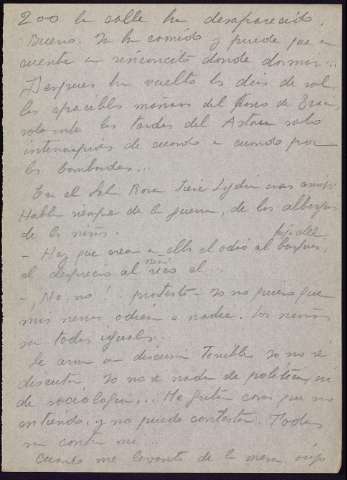 200 la calle ha desaparecido.
Bueno. Ya ha comido y puede que
encuentre un rinconcito donde dormir...
Despues ha vuelto los dias de sol
las apacibles mañanas del
solo ante las tardes del Astoria solo
interrumpidas de cuando a cuando por
los bombardeos...
En el Rosa Lydia
Habla siempre de la guerra, de los albergues
de los niños.
- Hay que crear en ellos el odio al burgues,
el desprecio al rico el...
- ¡No, no! protesto Yo no quiero que
mis nenes odien a nadie. Los niños
son todos iguales.
Se arma una discusion Terrible Yo no se
discutir. Yo no se nada de politica, ni
de sociologia... Me gritan cosas que no
entiendo, y no puedo contestar. Todos
son contra mi...
Cuando me levanto de la mesa oigo